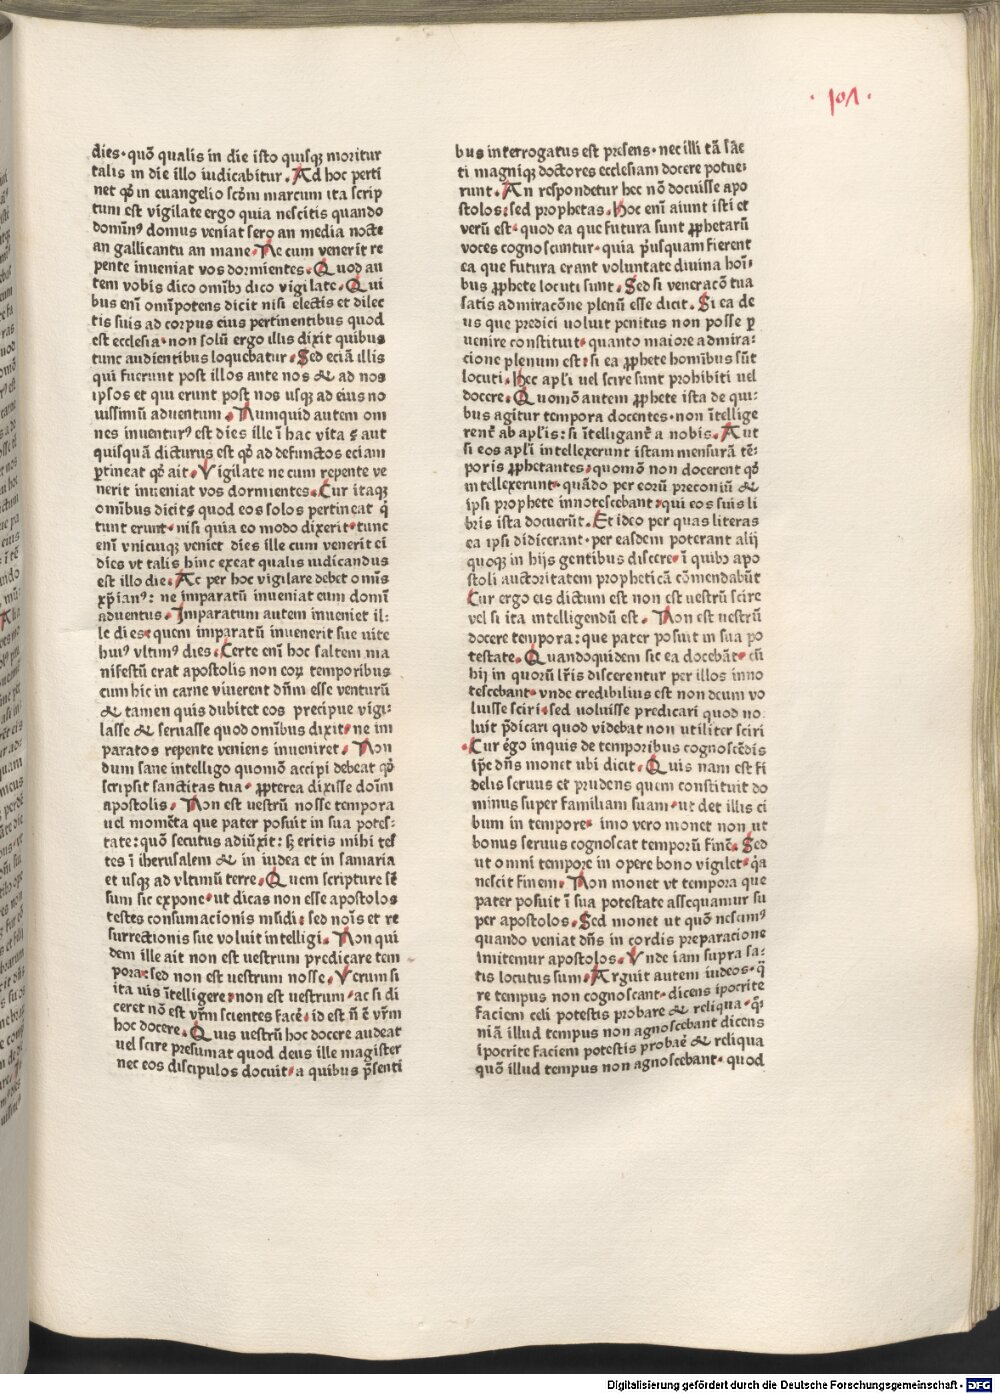 · 101 ·
dies· quō qualis in die isto quisqȝ moritur
talis in die illo iudicabitur. Ad hoc perti
net qd̕ in euangelio scd̕m marcum ita scrip
tum est vigilate ergo quia nescitis quando
domin⁹ domus veniat sero an media nocte
an gallicantu an mane. Ne cum venerit re
pente inueniat vos dormientes. Quod au
tem vobis dico omībꝰ dico vigilate. Qui
bus enī omīpotens dicit nisi electis et dilec
tis suis ad corpus eius pertinentibus quod
est ecclesia· non solū ergo illis dixit quibus
tunc audientibus loquebatur. Sed eciā illis
qui fuerunt post illos ante nos & ad nos
ipsos et qui erunt post nos usqȝ ad eius no
uissimū aduentum. Numquid autem om
nes inuentur⁹ est dies ille ī hac vita ꝯ aut
quisquā dicturus est qd̕ ad defunctos eciam
ꝑtineat qd̕ ait. Vigilate ne cum repente ve
nerit inueniat vos dormientes. Cur itaqȝ
omībus dicit ꝯ quod eos solos pertineat q̄
tunc erunt· nisi quia eo modo dixerit· tunc
enī vnicuiqȝ veniet dies ille cum venerit ei
dies vt talis hinc exeat qualis iudicandus
est illo die. Ac per hoc vigilare debet omīs
xp̄ian⁹: ne imparatū inueniat eum domī
aduentus. Imparatum autem inueniet il:
le dies· quem imparatū inuenerit sue vite
hui⁹ vltim⁹ dies. Certe enī hoc saltem ma
nifestū erat apostolis non eoꝝ temporibus
cum hic in carne viuerent dn̄m esse venturū
& tamen quis dubitet eos precipue vigi:
lasse & seruasse quod omībus dixit· ne im
paratos repente veniens inueniret. Non
dum sane intelligo quomō accipi debeat qd̕
scripsit sanctitas tua· ꝓpterea dixisse doīm
apostolis. Non est vestrū nosse tempora
uel momēta que pater posuit in sua potes:
tate: quō secutus adiūxit: sȝ eritis mihi tes
tes ī iherusalem & in iudea et in samaria
et usqȝ ad vltimū terre. Quem scripture sē
sum sic expone· ut dicas non esse apostolos
testes consumacionis mūdi: sed noīs et re
surrectionis sue voluit intelligi. Non qui
dem ille ait non est uestrum predicare tem
pora: sed non est uestrum nosse. Verum si
ita vis ītelligere: non est uestrum· ac si di
ceret nō est vr̄m scientes facē· id est ñ ē vr̄m
hoc docere. Quis uestrū hoc docere audeat
uel scire presumat quod deus ille magister
nec eos discipulos docuit· a quibus p̄senti
bus interrogatus est presens· nec illi tā sāc
ti magniqȝ doctores ecclesiam docere potue:
runt. An respondetur hec nō docuisse apo
stolos: sed prophetas. Hoc enī aiunt isti et
verū est· quod ea que futura sunt ꝓphetarū
voces cognoscuntur· quia p̄usquam fierent
ea que futura erant voluntate diuina hoī:
bus ꝓphete locuti sunt. Sed si veneracō tua
satis admiracōne plenū esse dicit. Si ea de
us que predici uoluit penitus non posse ꝑ
uenire constituit· quanto maiore admira:
cione plenum est: si ea ꝓphete homībus sūt
locuti. Hec apl'i uel scire sunt prohibiti uel
docere. Quomō autem ꝓphete ista de qui:
bus agitur tempora docentes· non ītellige
rent̄ ab apl'is: si ītelligant̄ a nobis. Aut
si eos apl'i intellexerunt istam mensurā tē:
poris ꝓphetantes· quomō non docerent qd̕
intellexerunt· quādo per eorū preconiū &
ipsi prophete innotescebant· qui eos suis li
bris ista docuerūt. Et ideo per quas literas
ea ipsi didicerant· per easdem poterant alij
quoqȝ in hijs gentibus discere· ī quibꝰ apo
stoli auctoritatem propheticā cōmendabūt
Cur ergo eis dictum est non est uestrū scire
vel si ita intelligendū est. Non est uestrū
docere tempora: que pater posuit in sua po
testate. Quandoquidem sic ea docebāt· cū
hij in quorū lr̄is discerentur per illos inno
tescebant· vnde credibilius est non deum vo
luisse sciri· sed voluisse predicari quod no:
luit p̄dicari quod videbat non utiliter sciri
Cur ergo inquis de temporibus cognoscēdis
ip̄e dn̄s monet ubi dicit. Quis nam est fi
delis seruus et prudens quem constituit do
minus super familiam suam· ut det illis ci
bum in tempore· imo vero monet non ut
bonus seruus cognoscat temporū finē. Sed
ut omni tempore in opere bono vigilet· q̄a
nescit finem. Non monet vt tempora que
pater posuit ī sua potestate assequamur su
per apostolos. Sed monet ut quō nesciam⁹
quando veniat dn̄s in cordis preparacione
imitemur apostolos. Vnde iam supra sa:
tis locutus sum. Arguit autem iudeos· q̄
re tempus non cognoscant· dicens ipocrite
faciem celi potestis probare & reliqua· q̄:
niā illud tempus non agnoscebant dicens
ipocrite faciem potestis probaē & reliqua
quō illud tempus non agnoscebant· quod
Digitalisierung gefördert durch die Deutsche Forschungsgemeinschaft - DFG